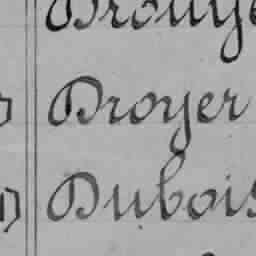 Droyer
Dubois